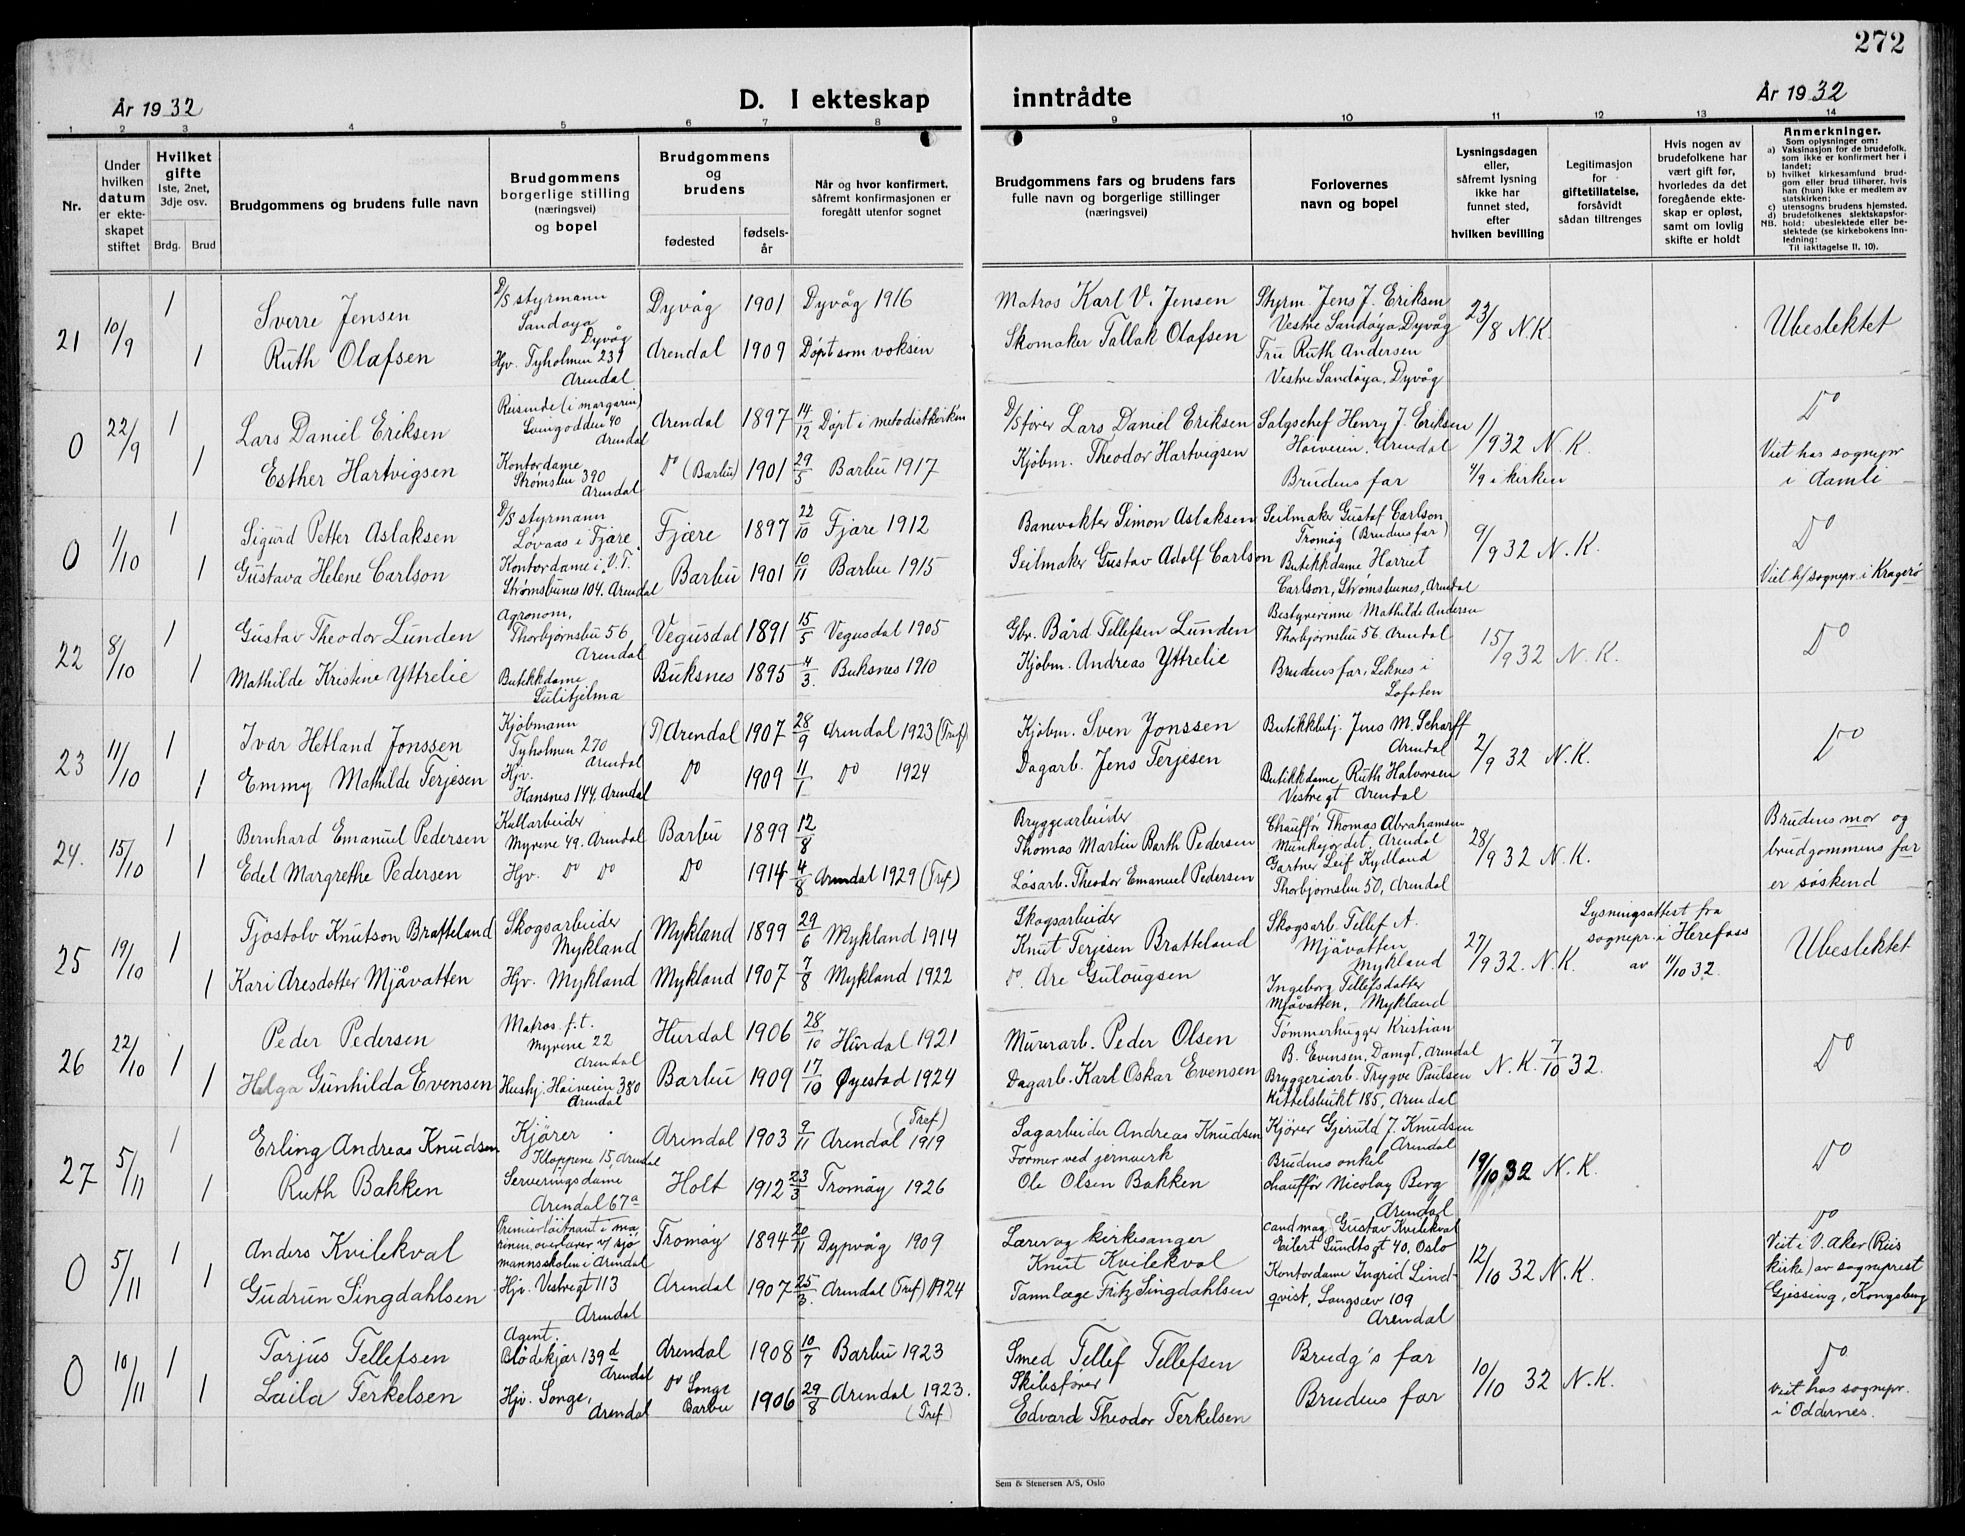 272
År 1932
D. I ekteskap
inntrådte
År 1932
1 2 3 4 5 6 7 8 9 10 11 12 13 14
Nr.
Under hvilken datum er ekteskapet stiftet
Hvilket gifte
1ste, 2net, 3dje osv.
Brdg. Brud
Brudgommens og brudens fulle navn
Brudgommens borgerlige stilling (næringsvei) og bopel
Brudgommens og brudens
fødested
fødselsår
Når og hvor konfirmert, såfremt konfirmasjonen er foregått utenfor sognet
Brudgommens fars og brudens fars fulle navn og borgerlige stillinger (næringsvei)
Forlovernes navn og bopel
Lysningsdagen eller, såfremt lysning ikke har funnet sted, efter hvilken bevilling
Legitimasjon for giftetillatelse, forsåvidt sådan tiltrenges
Hvis nogen av brudefolkene har vært gift før, hvorledes da det foregående ekteskap er opløst, samt om lovlig skifte er holdt
Anmerkninger.
Som oplysninger om:
a) Vaksinasjon for de brudefolk, som ikke er konfirmert her i landet;
b) hvilket kirkesamfund brudgom eller brud tilhører, hvis han (hun) ikke er medlem av statskirken;
c) utensogns brudens hjemsted.
d) brudefolkenes slektskapsforhold: ubeslektede eller beslektede (se kirkebokens Innledning:
NB. Til iakttagelse II, 10).
21 10/9 1 Sverre Jensen D/S styrmann Sandøya Dyvåg Dyvåg 1901 Dyvåg 1916 Matros Karl V. Jensen Styrm. Jens J. Eriksen Vestre Sandøya, Dyvåg 23/8 N.K. Ubeslektet
1 Ruth Olafsen Hjv. Tyholmen 239 Arendal Arendal 1909 Døpt som voksen Skomaker Tallak Olafsen Fru Ruth Andersen Vestre Sandøya, Dyvåg
0 22/9 1 Lars Daniel Eriksen Reisende (i margarin) Arendal Arendal 1897 14/12 Døpt i metodistkirken D/S fører Lars Daniel Eriksen Salgschef Henry J. Eriksen Høiveien, Arendal 11/9 32 N.K. Do
1 Esther Hartvigsen Kontordame Strømsbu 390 Arendal Do (Barbu) 1901 29/5 Barbu 1917 Kjøbm. Theodor Hartvigsen Brudens far 4/9 i kirken Viet hos sognepr i Åmli
0 1/10 1 Sigurd Petter Aslaksen D/S styrmann Løvaas i Fjære Fjære 1897 22/10 Fjære 1912 Banevokter Simon Aslaksen Seilmaker Gustaf Carlson Tromøy (Brudens far) 9/9 32 N.K. Do
1 Gustava Helene Carlson Kontordame i V.T. Strømsbunes 104. Arendal Barbu 1901 10/11 Barbu 1915 Seilmaker Gustav Adolf Carlson Butikkdame Harriet Carlson, Strømsbunes, Arendal Viet h/ sognepr. i Kragerø
22 8/10 1 Gustav Theodor Lunden Agronom, Thorbjørnsbu 56 Arendal Vegusdal 1891 15/5 Vegusdal 1905 Gbr. Bård Tellefsen Lunden Bestyrerinne Mathilde Andersen Thorbjørnsbu 56 Arendal 15/9 32 N.K. Do
1 Mathilde Kristine Yttrelie Butikkdame Sulitjelma Buksnes 1895 4/3. Buksnes 1910 Kjøbm. Andreas Yttrelie Brudens far, Leknes i Lofoten
23 11/10 1 Ivar Hetland Jonssen Kjøbmann Tyholmen 270 Arendal (T) Arendal 1907 28/9 Arendal 1923 (Tref) Kjøbm. Sven Jonssen Butikkbetj. Jens M. Scharff Arendal 2/9 32 N.K. Do
1 Emmy Mathilde Terjesen Hjv. Hansnes 144. Arendal Do 1909 11/1 Do 1924 Dagarb. Jens Terjesen Butikkdame Ruth Halvorsen Vestregt Arendal
24. 15/10 1 Bernhard Emanuel Pedersen Kullarbeider Myrene 49. Arendal Barbu 1899 12/8 Bryggearbeider Thomas Martin Barth Pedersen Chauffør Thomas Abrahamsen Munkejordet, Arendal 28/9 32 N.K. Brudens mor og brudgommens far er søskend
1 Edel Margrethe Pedersen Hjv. Do Do Do 1914 4/8 Arendal 1929 (Tref) Løsarb. Theodor Emanuel Pedersen Gartner Leif Kydland Thorbjørnsbu 50, Arendal
25 19/10 1 Tjostolv Knutson Bratteland Skogsarbeider Mykland Mykland 1899 29/6 Mykland 1914 Skogsarbeider Knut Terjesen Bratteland Skogsarb. Tellef A. Mjåvatten Mykland 27/9 32. N.K. Lysningsattest fra sognepr. i Herefoss av 11/10 32. Ubeslektet
1 Kari Aresdotter Mjåvatten Hjv. Mykland Mykland 1907 7/8 Mykland 1922 Do. Are Gulougsen Ingeborg Tellefsdatter Mjåvatten, Mykland
26 22/10 1 Peder Pedersen Matros f.t. Myrene 22 Arendal Hurdal 1906 28/10 Hurdal 1921 Murerarb. Peder Olsen Tømmerhugger Kristian B. Evensen, Damgt, Arendal N.K. 7/10 32. Do
1 Helga Gunhilda Evensen Hushj. Høiveien 380 Arendal Barbu 1909 17/10 Øyestad 1924 Dagarb. Karl Oskar Evensen Bryggeriarb. Trygve Paulsen Kittelsbukt 185, Arendal
27 5/11 1 Erling Andreas Knudsen Kjører Kloppene 15, Arendal Arendal 1903 9/11 Arendal 1919 (Tref) Sagarbeider Andreas Knudsen Kjører Gjeruld J. Knudsen Arendal 19/10 32 N.K. Do
1 Ruth Bakken Serveringsdame Arendal 67a Holt 1912 23/3 Tromøy 1926 Former ved jernverk Ole Olsen Bakken Brudens onkel chauffør Nicolay Berg Arendal
0 5/11 1 Anders Kvilekval Premierløitnant i marinen, overlærer v/ sjømannsskolen i Arendal Tromøy 1894 20/11 Dypvåg 1909 Lærer og kirkesanger Knut Kvilekval cand mag Gustav Kvilekval Eilert Sundts gt 40, Oslo 12/10 32 N.K. Do Viet i V. Aker (Ris kirke) av sogneprest Gjessing, Kongsberg
1 Gudrun Singdahlsen Hjv. Vestregt 113 Arendal Arendal 1907 25/3. Arendal (Tref) 1924 Tannlæge Fritz Singdahlsen Kontordame Ingrid Lindqvist, Langsæv 109 Arendal
0 10/11 1 Torjus Tellefsen Agent. Blødekjær 139 d Arendal Arendal 1908 10/7 Barbu 1923 Smed Tellef Tellefsen Brudg's far 10/10 32 N.K. Do
1 Laila Terkelsen Hjv. Songe, Arendal Do Songe Barbu 1906 29/8 Arendal 1923. (Tref) Skibsfører Edvard Theodor Terkelsen Brudens far Viet hos sognepr. i Oddernes.
Sem & Stenersen A/S, Oslo